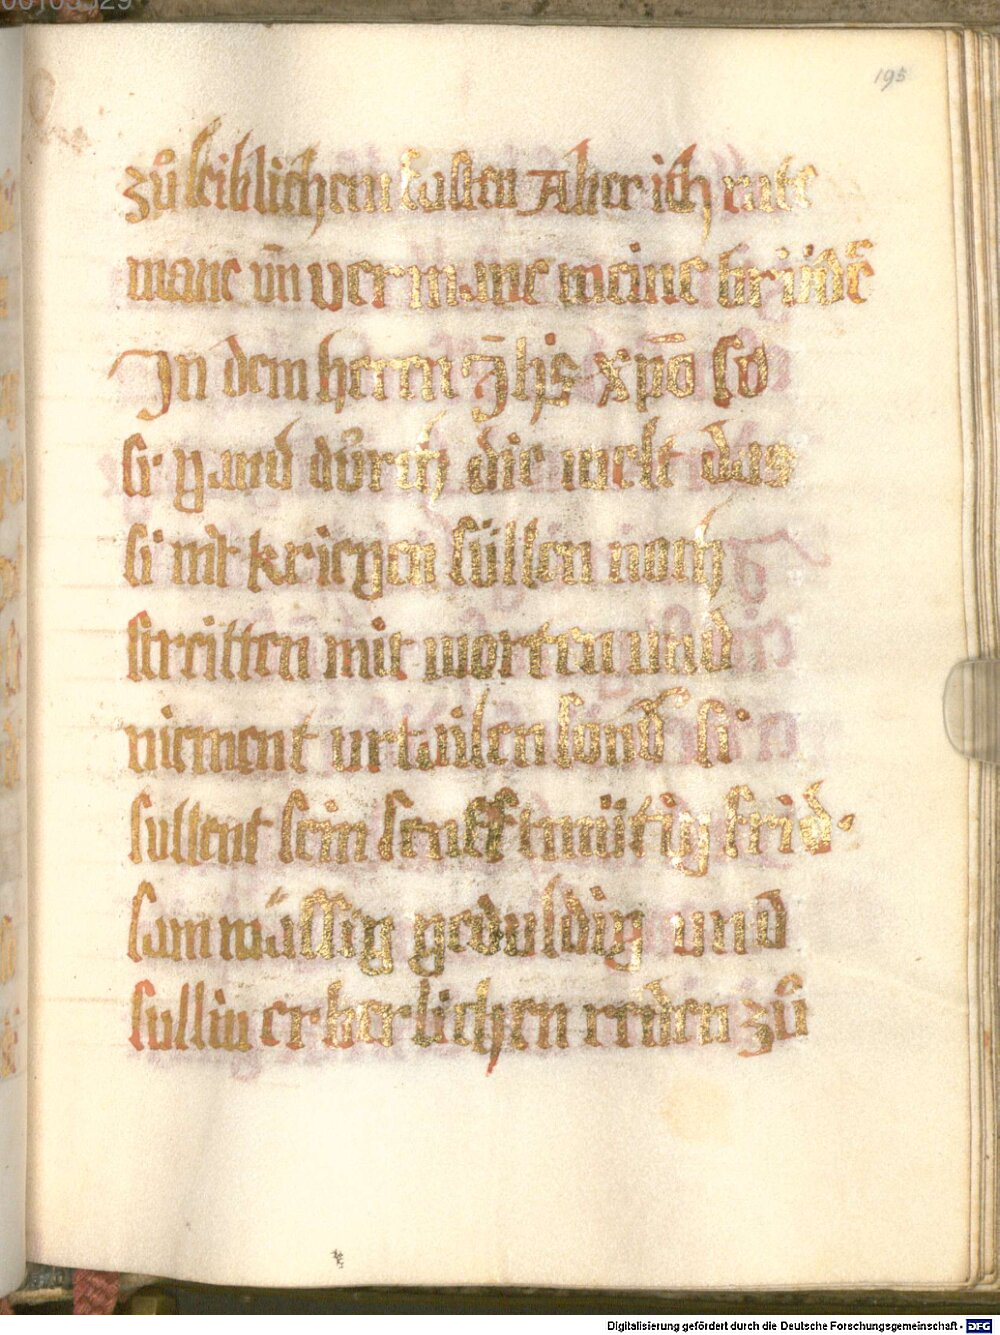 00103329
195
zů leiblichem fasten Aber ich rate
mane vn̄ vermane meine brüder
In dem herren Jh̄s xpō so
si gand důrch die welt das
si nit kriegen süllen noch
streitten mit worten und
niement urtailen sond si
sullent sein senfftmütig frid
sam mässig geduldig und
sullin erberlichen reden zů
Digitalisierung gefördert durch die Deutsche Forschungsgemeinschaft - DFG